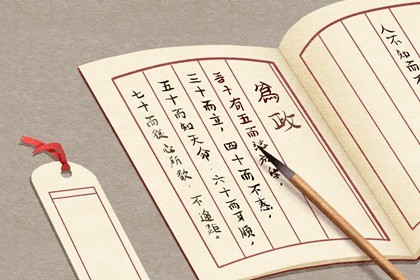 人不知而不
為政
吾十有五而
三十而立，四十而不惑，
五十而知天命，六十而耳順，
七十而從心所欲，不逾距。